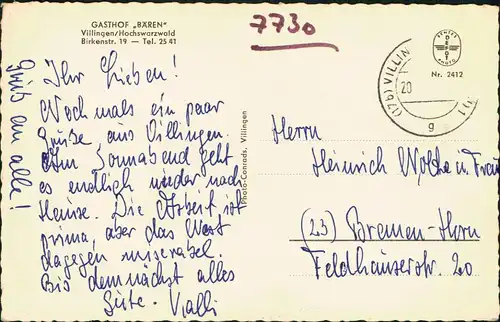 GASTHOF „BÄREN"
Villingen/Hochschwarzwald
Birkenstr. 19 — Tel. 25 41
7730
Ihr Lieben!
Nochmals ein paar
Grüße aus Villingen.
Am Sonnabend geht
es endlich wieder nach
Hause. Die Arbeit ist
prima, aber das
dagegen miserabel.
Bis demnächst alles
Gute.
Gruß an alle!
Photo-Conrads, Villingen
Nr. 2412
(17b) VILLIN
20
g
Herrn
Heinrich u. Frau
(23) Bremen-Horn
Feldhäuserstr. 20